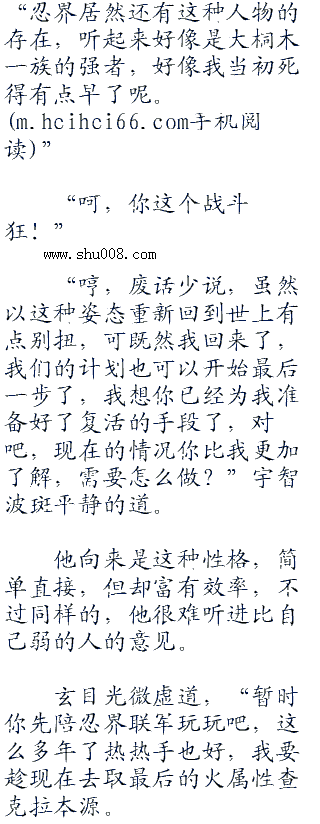 “忍界居然还有这种人物的
存在，听起来好像是大桐木
一族的强者，好像我当初死
得有点早了呢。
(m.hcihci66.com手机阅
读)”
“呵，你这个战斗
狂！”
www.shu008.com
“哼，废话少说，虽然
以这种姿态重新回到世上有
点别扭，可既然我回来了，
我们的计划也可以开始最后
一步了，我想你已经为我准
备好了复活的手段了，对
吧，现在的情况你比我更加
了解，需要怎么做？”宇智
波斑平静的道。
他向来是这种性格，简
单直接，但却富有效率，不
过同样的，他很难听进比自
己弱的人的意见。
玄目光微虚道，“暂时
你先陪忍界联军玩玩吧，这
么多年了热热手也好，我要
趁现在去取最后的火属性查
克拉本源。